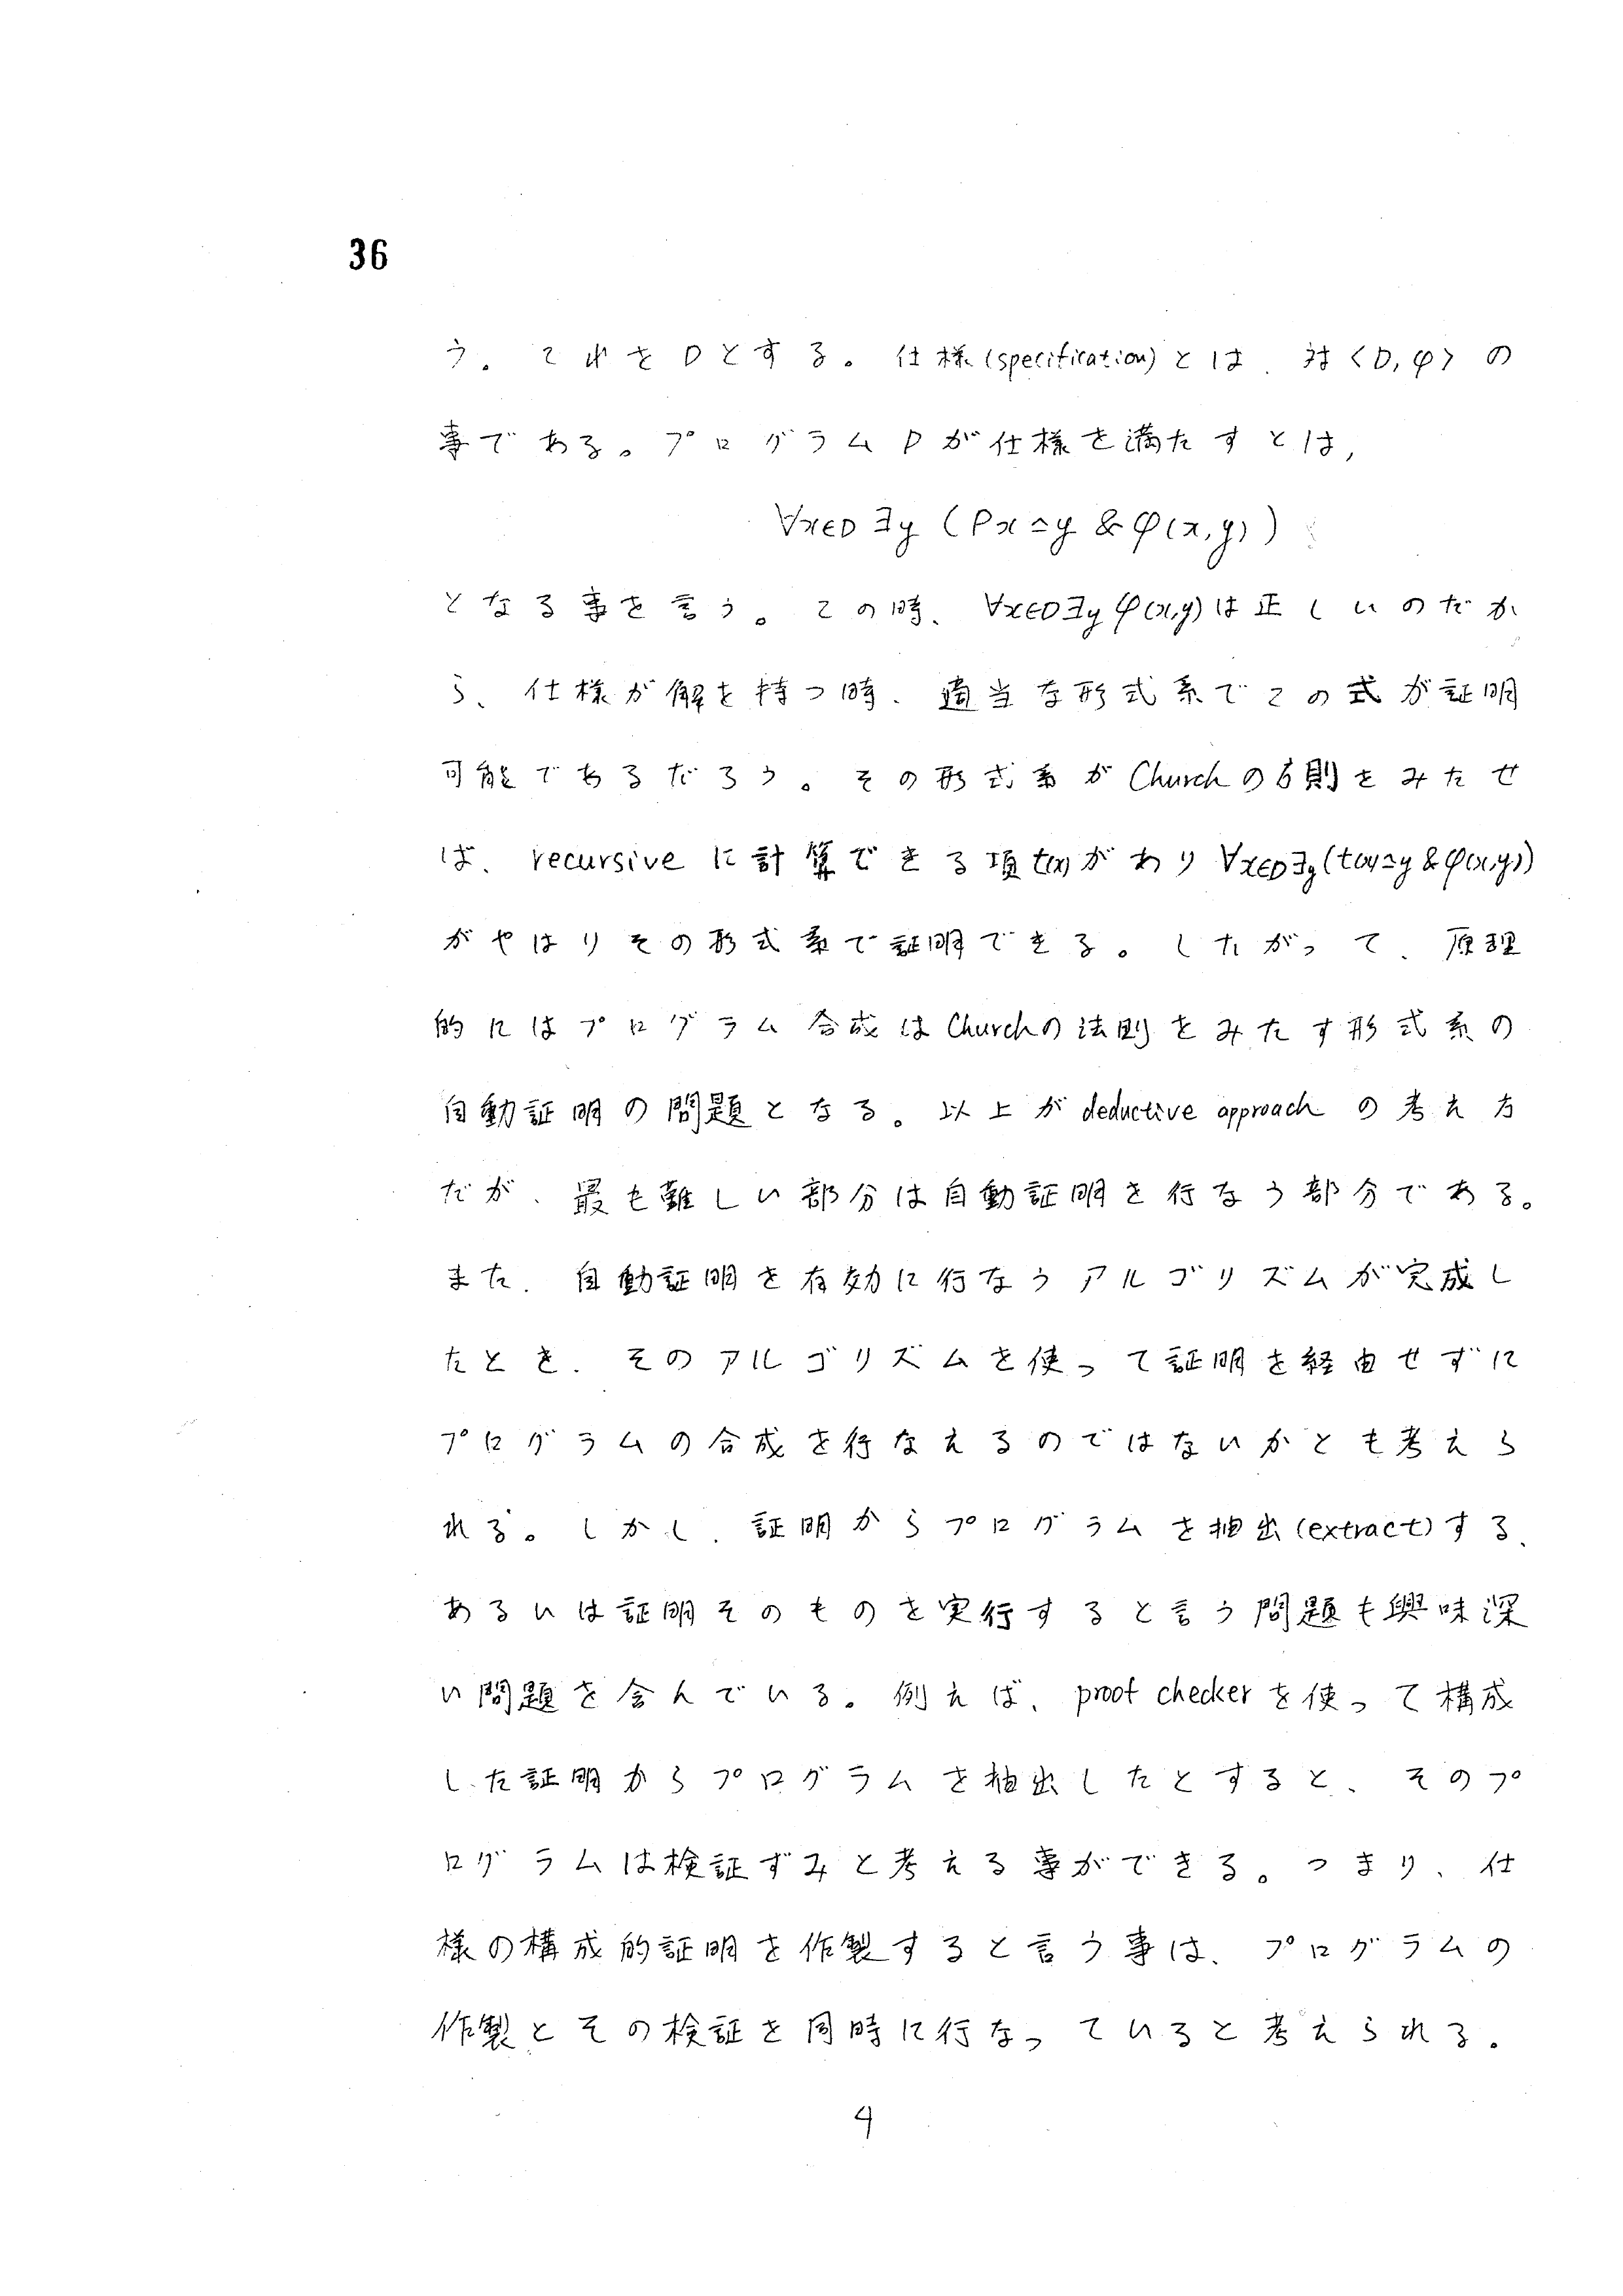 36
う。これをDとする。仕様(specification)とは、対〈D,φ〉の
事である。プログラムPが仕様を満たすとは,
∀x∈D∃y(Px=y&φ(x,y))
となる事を言う。この時、∀x∈D∃yφ(x,y)は正しいのだか
ら、仕様が解を持つ時、適当な形式系でこの式が証明
可能であるだろう。その形式系がChurchの 則をみたせ
ば、recursiveに計算できる項t(x)があり∀x∈D∃y(t(x)=y&φ(x,y))
がやはりその形式系で証明できる。したがって、原理
的にはプログラム合成はChurchの法則をみたす形式系の
自動証明の問題となる。以上がdeductive approachの考え方
だが、最も難しい部分は自動証明を行なう部分である。
また、自動証明を有効に行なうアルゴリズムが完成し
たとき、そのアルゴリズムを使って証明を経由せずに
プログラムの合成を行なえるのではないかとも考えら
れる。しかし、証明からプログラムを抽出(extract)する、
あるいは証明そのものを実行すると言う問題も興味深
い問題を含んでいる。例えば、proof checkerを使って構成
した証明からプログラムを抽出したとすると、そのプ
ログラムは検証ずみと考える事ができる。つまり、仕
様の構成的証明を作製すると言う事は、プログラムの
作製とその検証を同時に行なっていると考えられる。
4